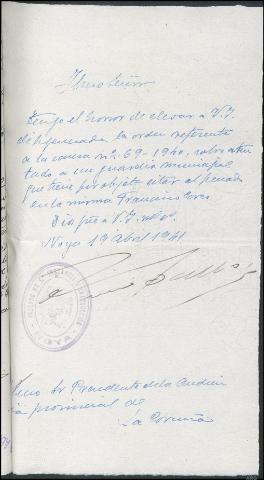 Ilmo Señor
Tengo el honor de elevar a V.I.
diligenciada la orden referente
a la causa nº 69-1940, sobre aten
tado a un guardia municipal
que tiene por objeto citar al penado
en la misma Francisco
Dios gue a V.I. 
Noya 19 abril 1941
NOYA
Ilmo Sr Presidente de la Audien
cia provincial de
La Coruña